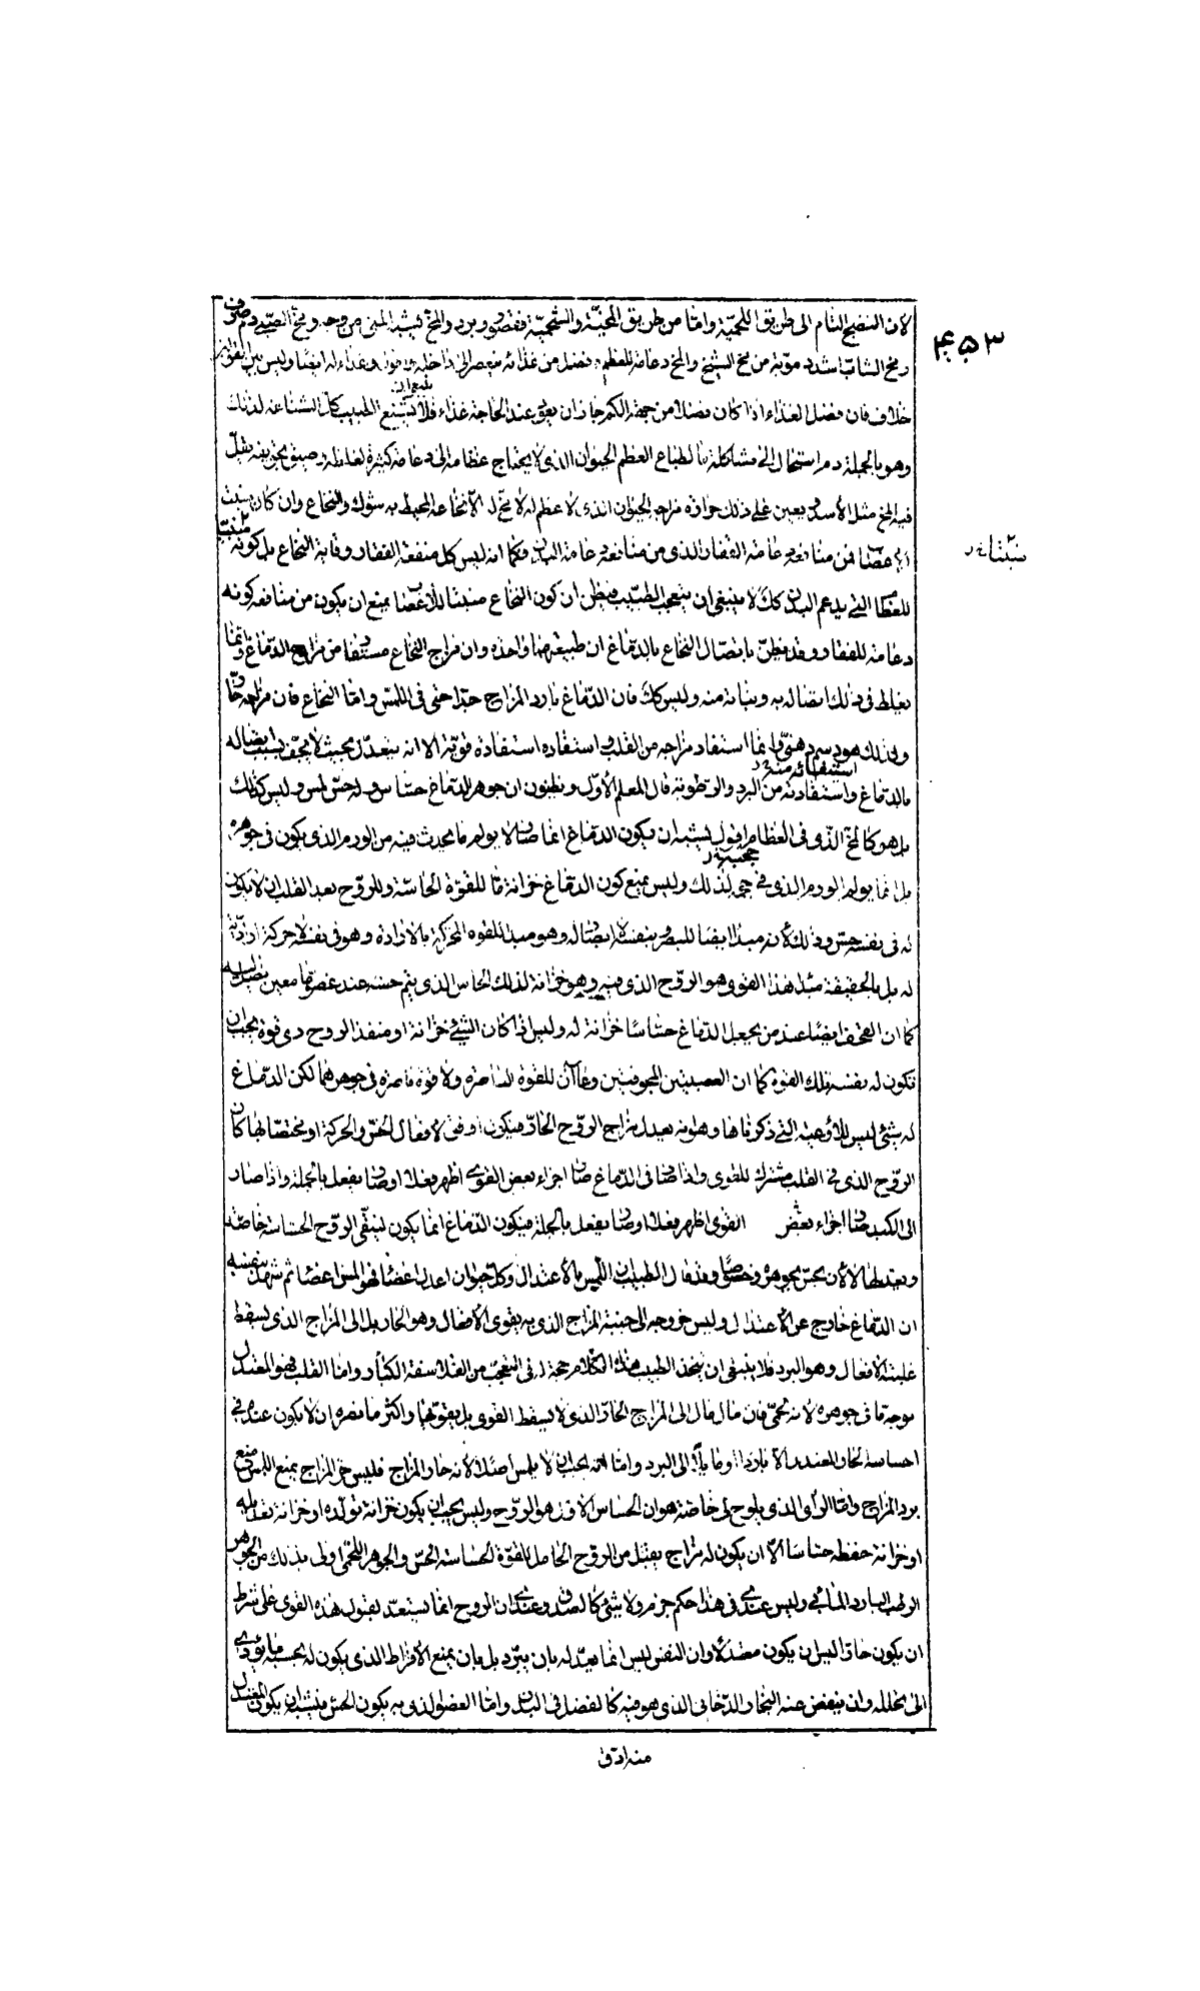 لان النضج التام الى طريق اللحمية واما من طريق المخية والشحمية فقصور وبرد والمخ يشبه المنى من وجه ومخ الصبى دم صرف
۴۵۳
ومخ الشاب اشد دموية من مخ الشيخ والمخ دعامة للعظم فضل من غذائه داخله وغذاء له ايضا وليس بين القولين
خلاف فان فضل الغذاء اذا كان فضلا من جهة الكم جاز ان يعود عند الحاجة غذاء فلا يشنع الطبيب كل الشناعة لذلك
وهو بالجملة دم استحال الى مشاكلة ما لطباع العظم الحيوان الذى لا يحتاج عظامه الى دعامة كثيرة لغلظه وضيق تجويفه يقل
فيه المخ مثل الاسد ويعين على ذلك حرارة مزاجه الحيوان الذى لا عظم له لا مخ له الا نخاعه المحيط به شوك والنخاع وان كان ينبت
الاعضا فمن منافعه دعامة الفقار الذى من منافعه دعامة البدن فكما انه ليس كل منفعة الفقار وقاية النخاع بل كونه منبتا
منبتا
للعظام التى يدعم البدن كك لا ينبغى ان يتعجب الطبيب فيظن ان كون النخاع منبتا للاعضا يمنع ان يكون من منافعه كونه
دعامة للفقار وقد يظن باتصال النخاع بالدماغ ان طبيعتهما واحدة وان مزاج النخاع مستفاد من مزاج الدماغ وانما
يغلط فى ذلك اتصاله به ونباته منه وليس كك فان الدماغ بارد المزاج جدا حتى فى اللمس واما النخاع فان مزاجه حار
ولذلك هو دسم دهنى وانما استفاد مزاجه من القلب واستفاده استفادة قوية الا انه يتعدل بحيث لا يجف بسبب اتصاله
بالدماغ واستفادته من البرد والرطوبة قال المعلم الاول ويظنون ان جوهر الدماغ حساس وله حس لمس وليس كذلك
بل هو كالمخ الذى فى العظام اقول يشبه ان يكون الدماغ انما صار لا يولم ما يحدث فيه من الورم الذى يكون فى جوهره
بل انما يولم الورم الذى فى حجبه لذلك وليس يمنع كون الدماغ خزانة ما للقوة الحاسة وللروح بعد القلب ان لا يكون
له فى نفسه حس وذلك لانه مبدا ايضا للبصر وبنفسه لا ابصار له وهو مبدا للقوة المحركة بالارادة وهو فى نفسه لا حركة ارادية
له بل بالحقيقة مبدا هذا القوى هو الروح الذى فيه وهو خزانة لذلك الحاس الذى يتم حسه عند عضو ما معين يتصل به
كما ان القحف ايضا عند من يجعل الدماغ حساسا خزانة له وليس اذا كان الشئ خزانة او منفذ الروح ذى قوة يجب ان
تكون له بنفسه تلك القوة كما ان العصبيتين المجوفتين وعاآن للقوة الباصرة ولا قوة باصرة فى جوهرهما لكن الدماغ
له شئ ليس للاوعية التى ذكرناها وهو انه يعدل مزاج الروح الحار فيكون اوفق لافعال الحس والحركة او مختصا بها كان
الروح الذى فى القلب مشترك للقوى واذا صار فى الدماغ صار اجزاء بعض القوى اظهر فعلا او صار يفعل بالجملة واذا صار
الى الكبد صار اجزاء بعض القوى اظهر فعلا او صار يفعل بالجملة فيكون الدماغ انما يكون لينقى الروح الحساسة خاصة
ويعتدلها لا لان يحس بجوهره وخصوصا وقد قال الطبيب ان اللمس بالاعتدال وكل حيوان اعدل اعضا فهو المس اعضا ثم شهد بنفسه
ان الدماغ خارج عن الاعتدال وليس خروجه الى جنبة المزاج الذى به يقوى الافعال وهو الحار بل الى المزاج الذى يسقط
غلبته الافعال وهو البرد فلا ينبغى ان يتخذ الطبيب هذا الكلام حجة له فى التعجب من الفلاسفة الكبار واما القلب فهو المعتدل
بوجه ما فى جوهره لانه لحمى فان مال مال الى المزاج الحار الذى لا يسقط القوى بل يقويها واكثر ما يضره ان لا يكون عنده فى
احساسه الحار المعتدل الا باردا او مايلا الى البرد واما انه يجب ان لا يلمس اصلا لانه حار المزاج فليس حر المزاج يمنع اللمس منع
برد المزاج واما الراى الذى يلوح لى خاصة هو ان الحساس الاول هو الروح وليس يجب ان يكون خزانة تولده او خزانة تعديله
او خزانة حفظه حساسا الا ان يكون له مزاج يقبل من الروح الحامل للقوة الحساسة الحس والجوهر اللحمى اولى بذلك من الجوهر
الرطب البارد المائى وليس عندى فى هذا حكم جزم ولا شئ كالصادق وعندى ان الروح انما يستعد لقبول هذه القوى على شرط
ان يكون حارا ليس ان يكون معتدلا وان النفس ليس انما يعدله بان يبرد بل بان يمنع الافراط الذى يكون له بحسبه ما يؤدى
الى تحلله وان ينفض عنه البخار الدخانى الذى هو فيه كالفضل فى البدن واما العضو الذى به يكون الحس فيشبه ان يكون المعتدل
منه ادق